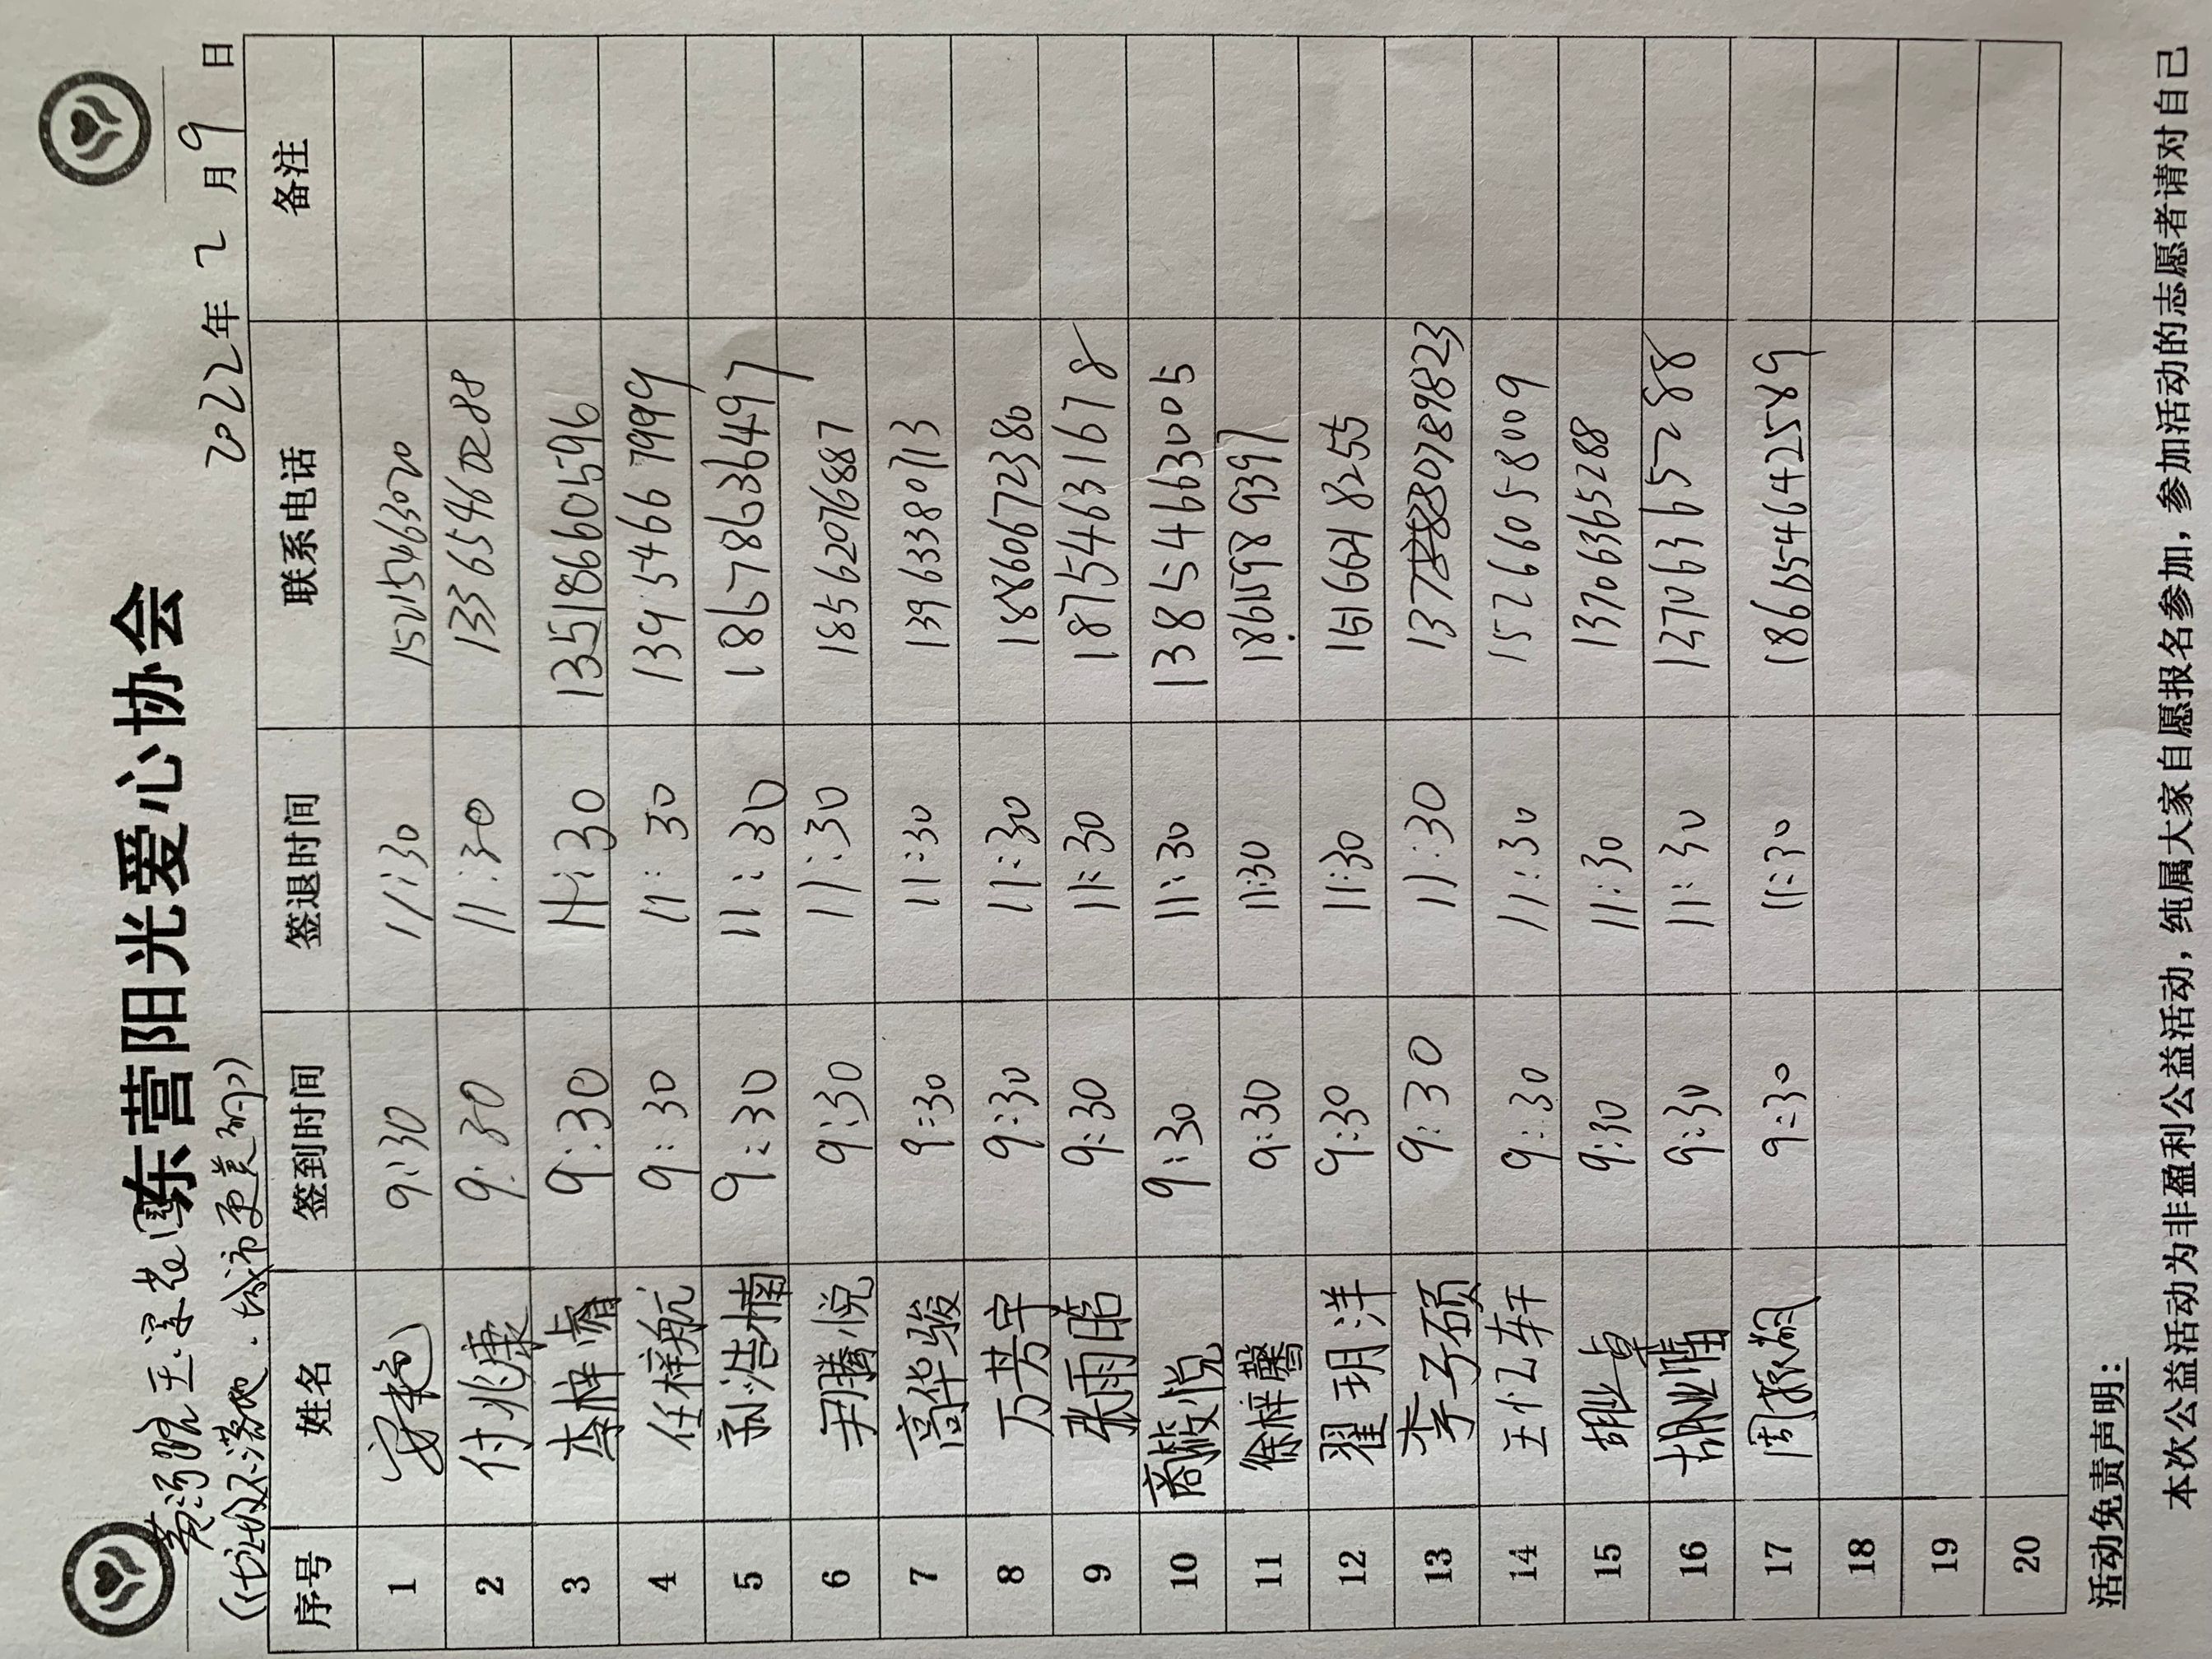 东营阳光爱心协会
《垃圾不落地·城市更美丽》 2022年2月9日
序号 姓名 签到时间 签退时间 联系电话 备注
1 9:30 11:30 15215463020
2 付兆康 9:30 11:30 13365460288
3 李梓睿 9:30 11:30 13518660596
4 任梓航 9:30 11:30 13954667999
5 孙浩楠 9:30 11:30 18678636497
6 尹腾悦 9:30 11:30 18562076887
7 高华骏 9:30 11:30 13963380113
8 万芳宇 9:30 11:30 18860672380
9 张雨菡 9:30 11:30 18754631678
10 商筱悦 9:30 11:30 13854663005
11 徐梓馨 9:30 11:30 18615989397
12 翟玥洋 9:30 11:30 15166418255
13 李子硕 9:30 11:30
14 王亿轩 9:30 11:30 15266058009
15 胡业卓 9:30 11:30 13706365288
16 胡业晴 9:30 11:30 13706365288
17 9:30 11:30 18654642589
18
19
20
活动免责声明：
本次公益活动为非盈利公益活动，纯属大家自愿报名参加，参加活动的志愿者请对自己